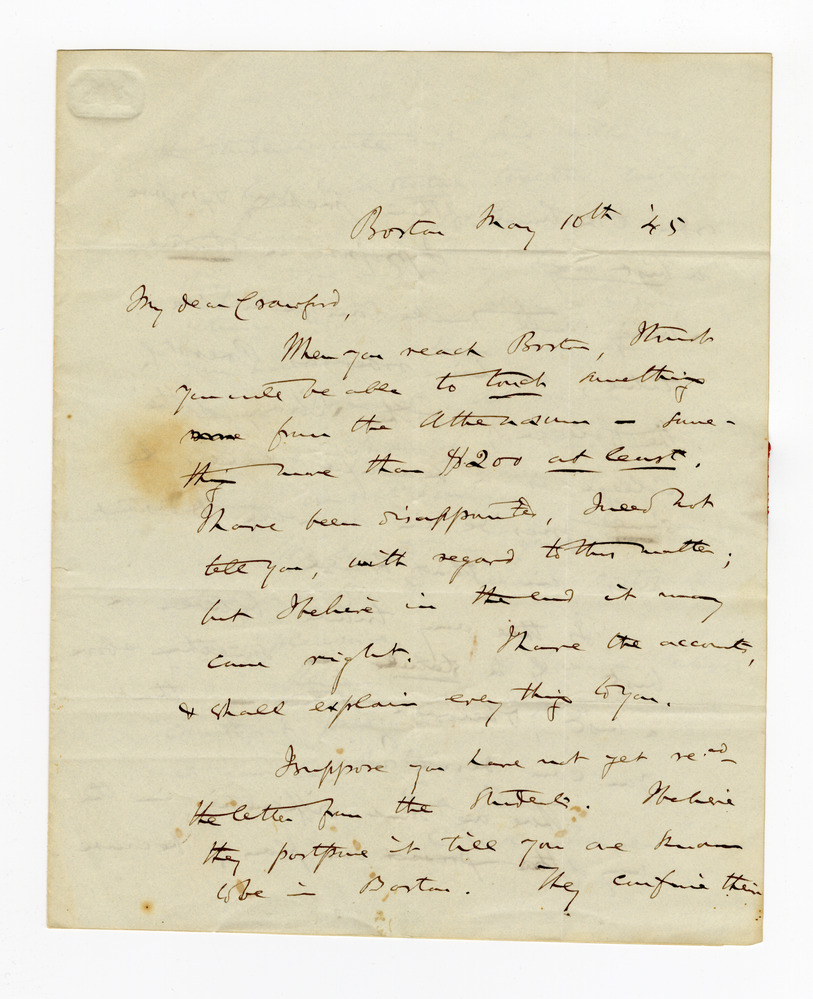 Boston May 10th '45
My dear Crawford,
When you reach Boston, I think
you will be able to touch something
more from the Athenaeum — some-
thing more than $200 at least.
I have been disappointed, I need not
tell you, with regard to this matter;
but I believe in the end it may
come right. I have the accounts,
& shall explain every thing to you.
I suppose you have not yet rec.d
the letter from the Students. I believe
they postpone it till you are known
to be in Boston. They confine their